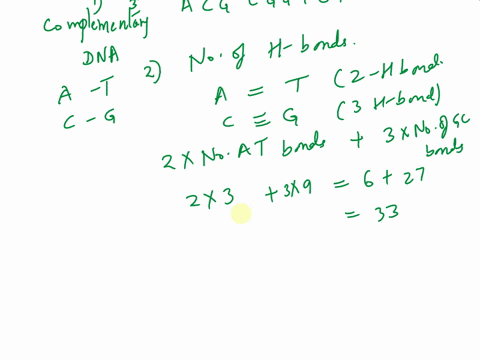 1) 3'
Complementary
DNA
A - T
C - G
2) No. of H-bonds.
A = T (2-H bond.
C ≡ G (3 H-bond)
2 × No. AT bonds + 3 × No. of GC bonds
2 × 3 + 3×9 = 6 + 27
= 33